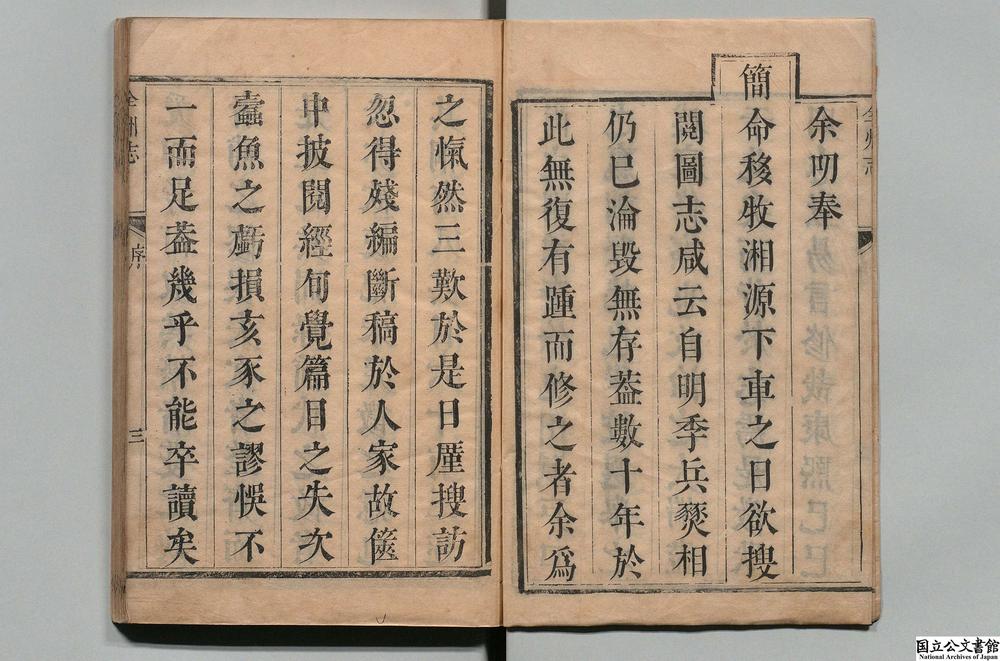 全州志
余叨奉
簡命移牧湘源下車之日欲搜
閱圖志咸云自明季兵燹相
仍巳淪毀無存葢數十年於
此無復有踵而修之者余爲
之愾然三歎於是日厪搜訪
忽得殘編斷稿於人家故篋
中披閱經旬覺篇目之失次
蠧魚之虧損亥豕之謬悞不
一而足葢幾乎不能卒讀矣
全州志 序 三
国立公文書館
National Archives of Japan